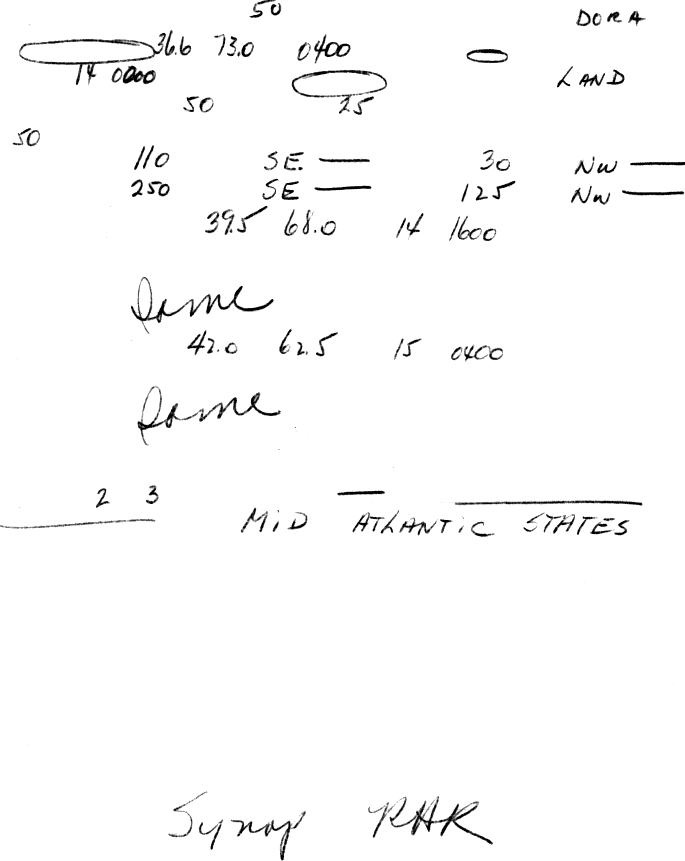 50
DORA
36.6 73.0 0400
14 0000
LAND
50 25
50
110 SE. — 30 NW —
250 SE — 125 NW —
39.5 68.0 14 1600
Same
42.0 62.5 15 0400
Same
2 3 —
MiD ATLANTiC STATES
Synop RHR